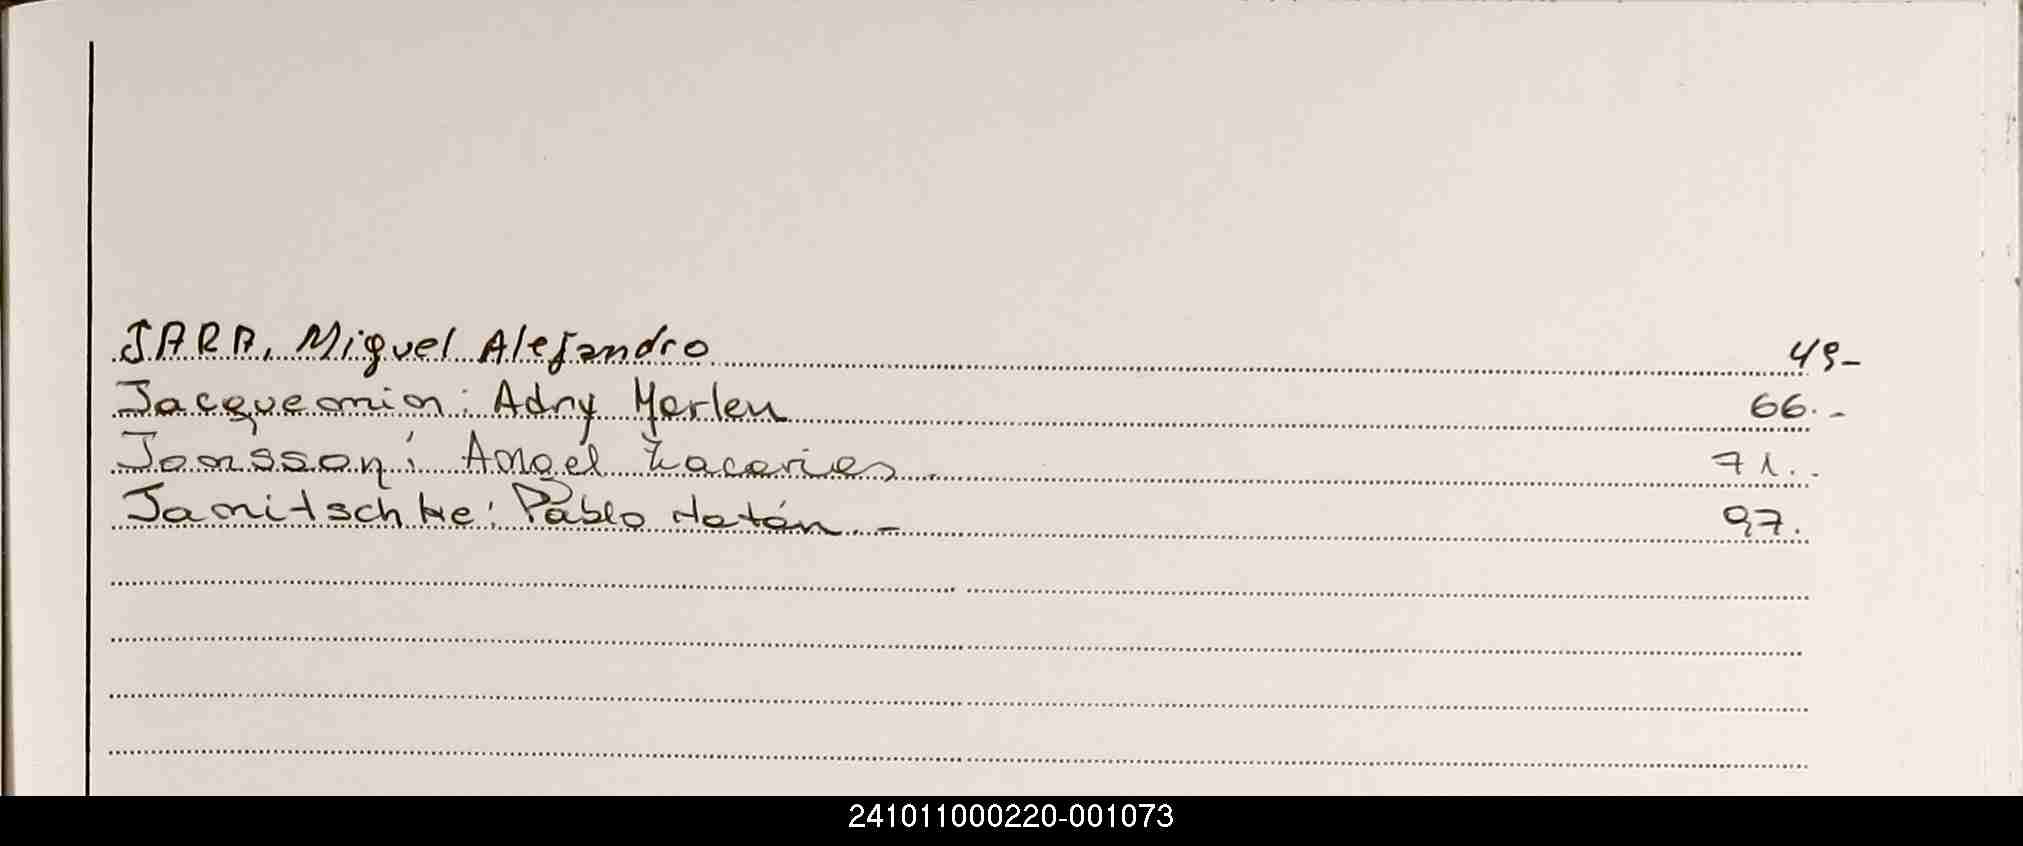 JARA, Miguel Alejandro 49-
Jacquemin: Adny Merlen 66.-
Jonsson: Angel Zacaries 71..
Janitschke: Pablo Natán.- 97.
241011000220-001073